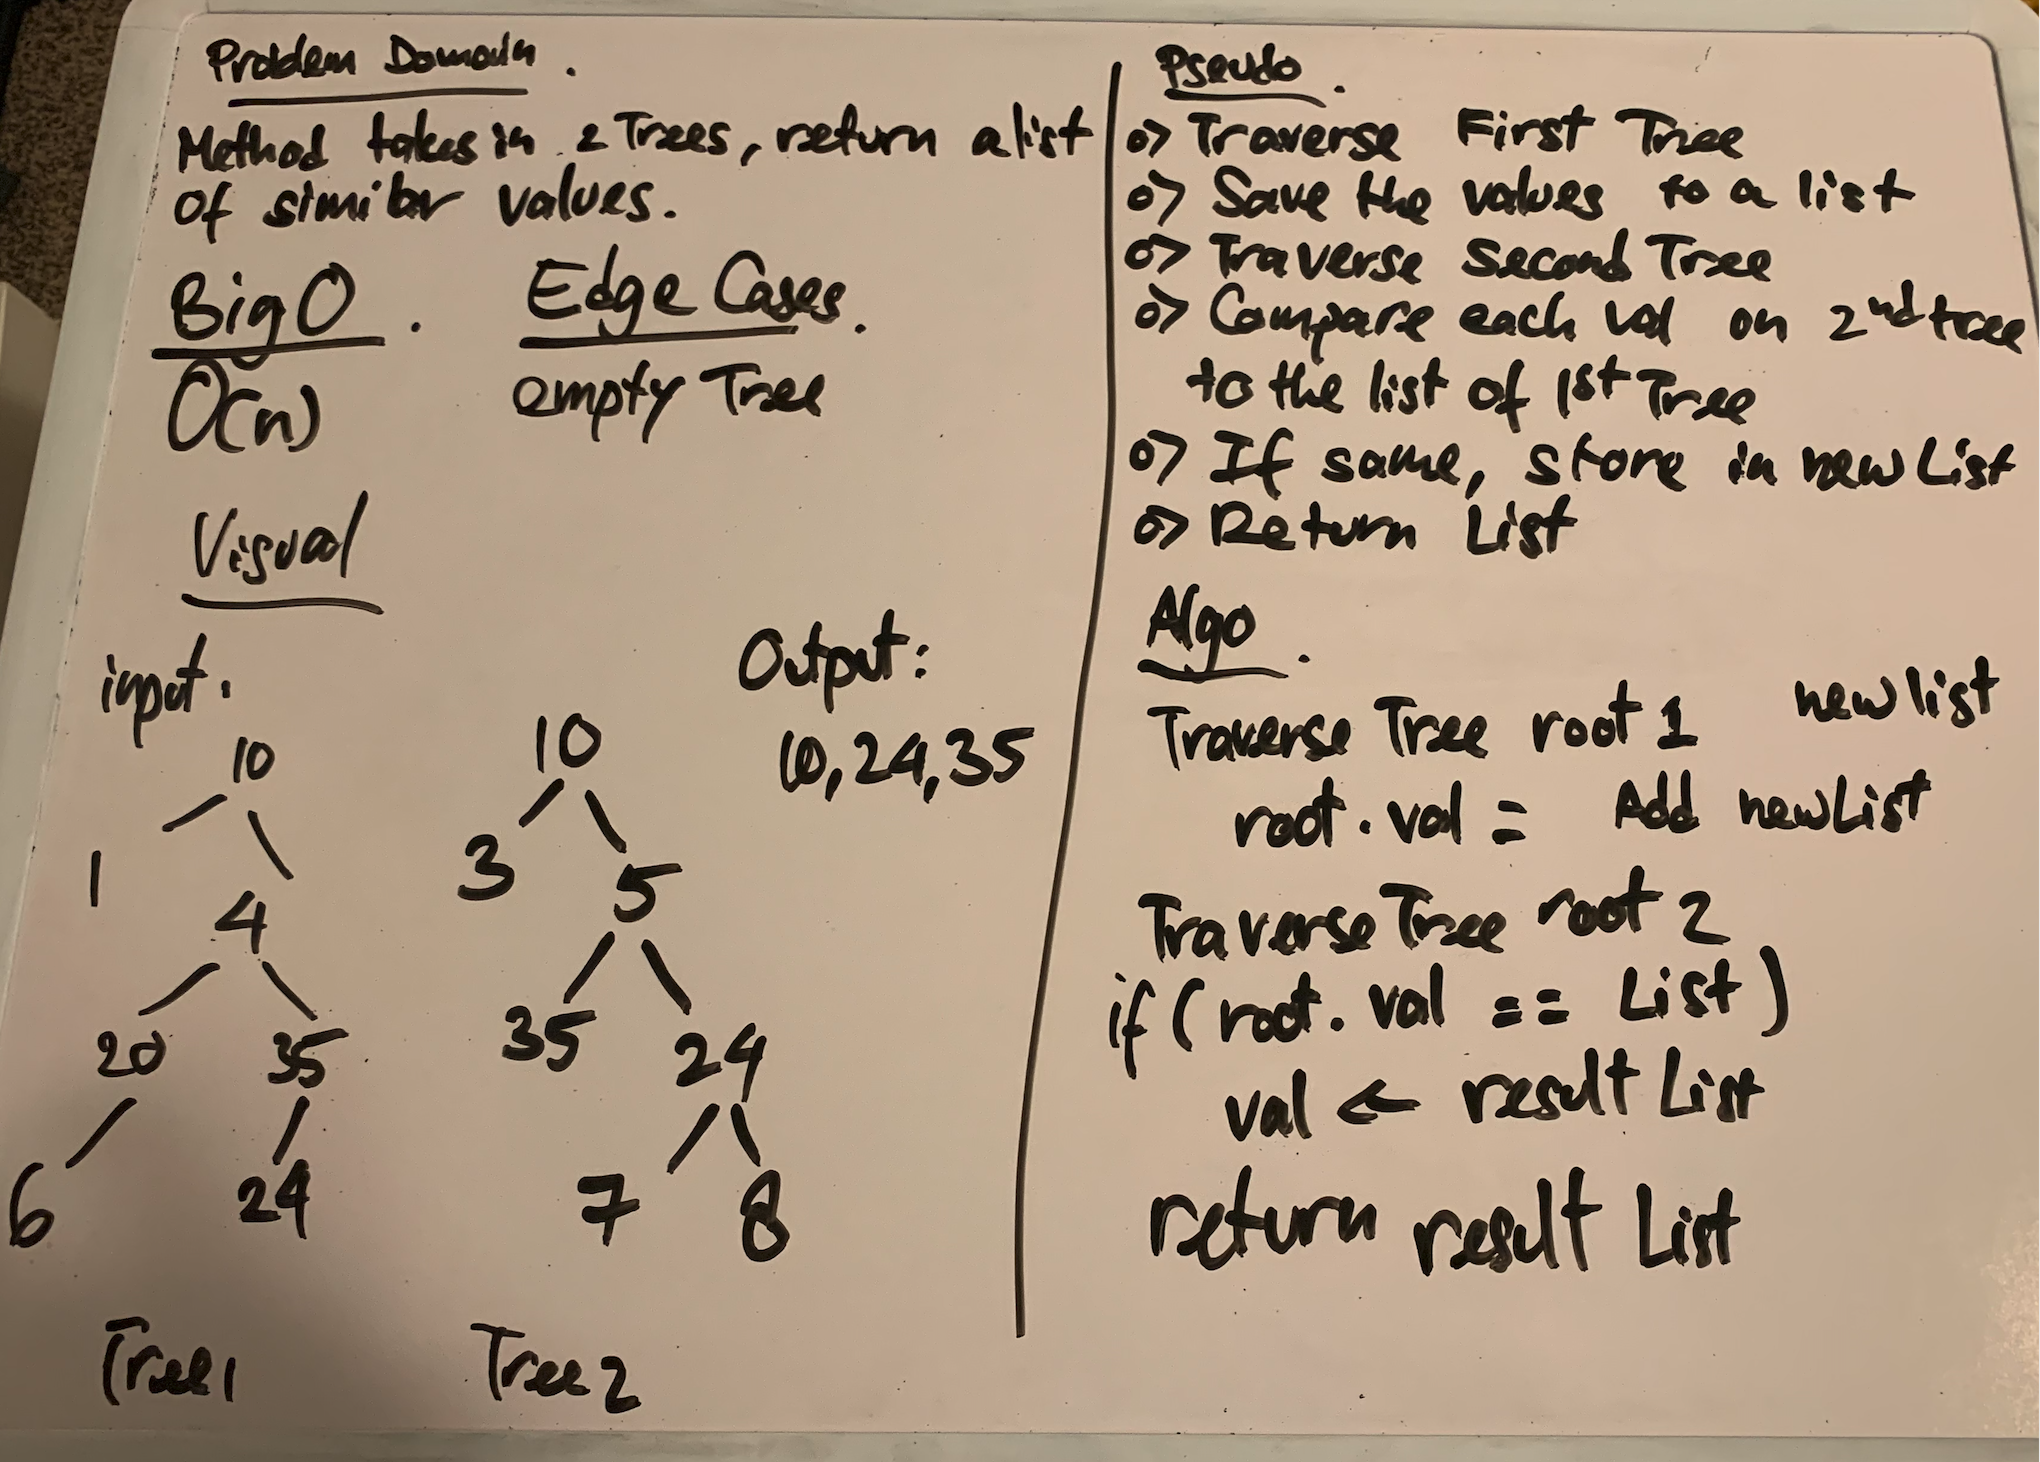 Problem Domain.
Method takes in 2 Trees, return a list
of similar values.
Big O.
Edge Cases.
O(n)
empty Tree
Visual
input.
Output:
10, 24, 35
10
1
4
20 35
6 24
Tree1
10
3 5
35 24
7 8
Tree 2
Pseudo.
o> Traverse First Tree
o> Save the values to a list
o> Traverse Second Tree
o> Compare each val on 2nd tree
to the list of 1st Tree
o> If same, store in new List
o> Return List
Algo.
Traverse Tree root 1 new list
root.val = Add newList
Traverse Tree root 2
if (root.val == List)
val ← result List
return result List